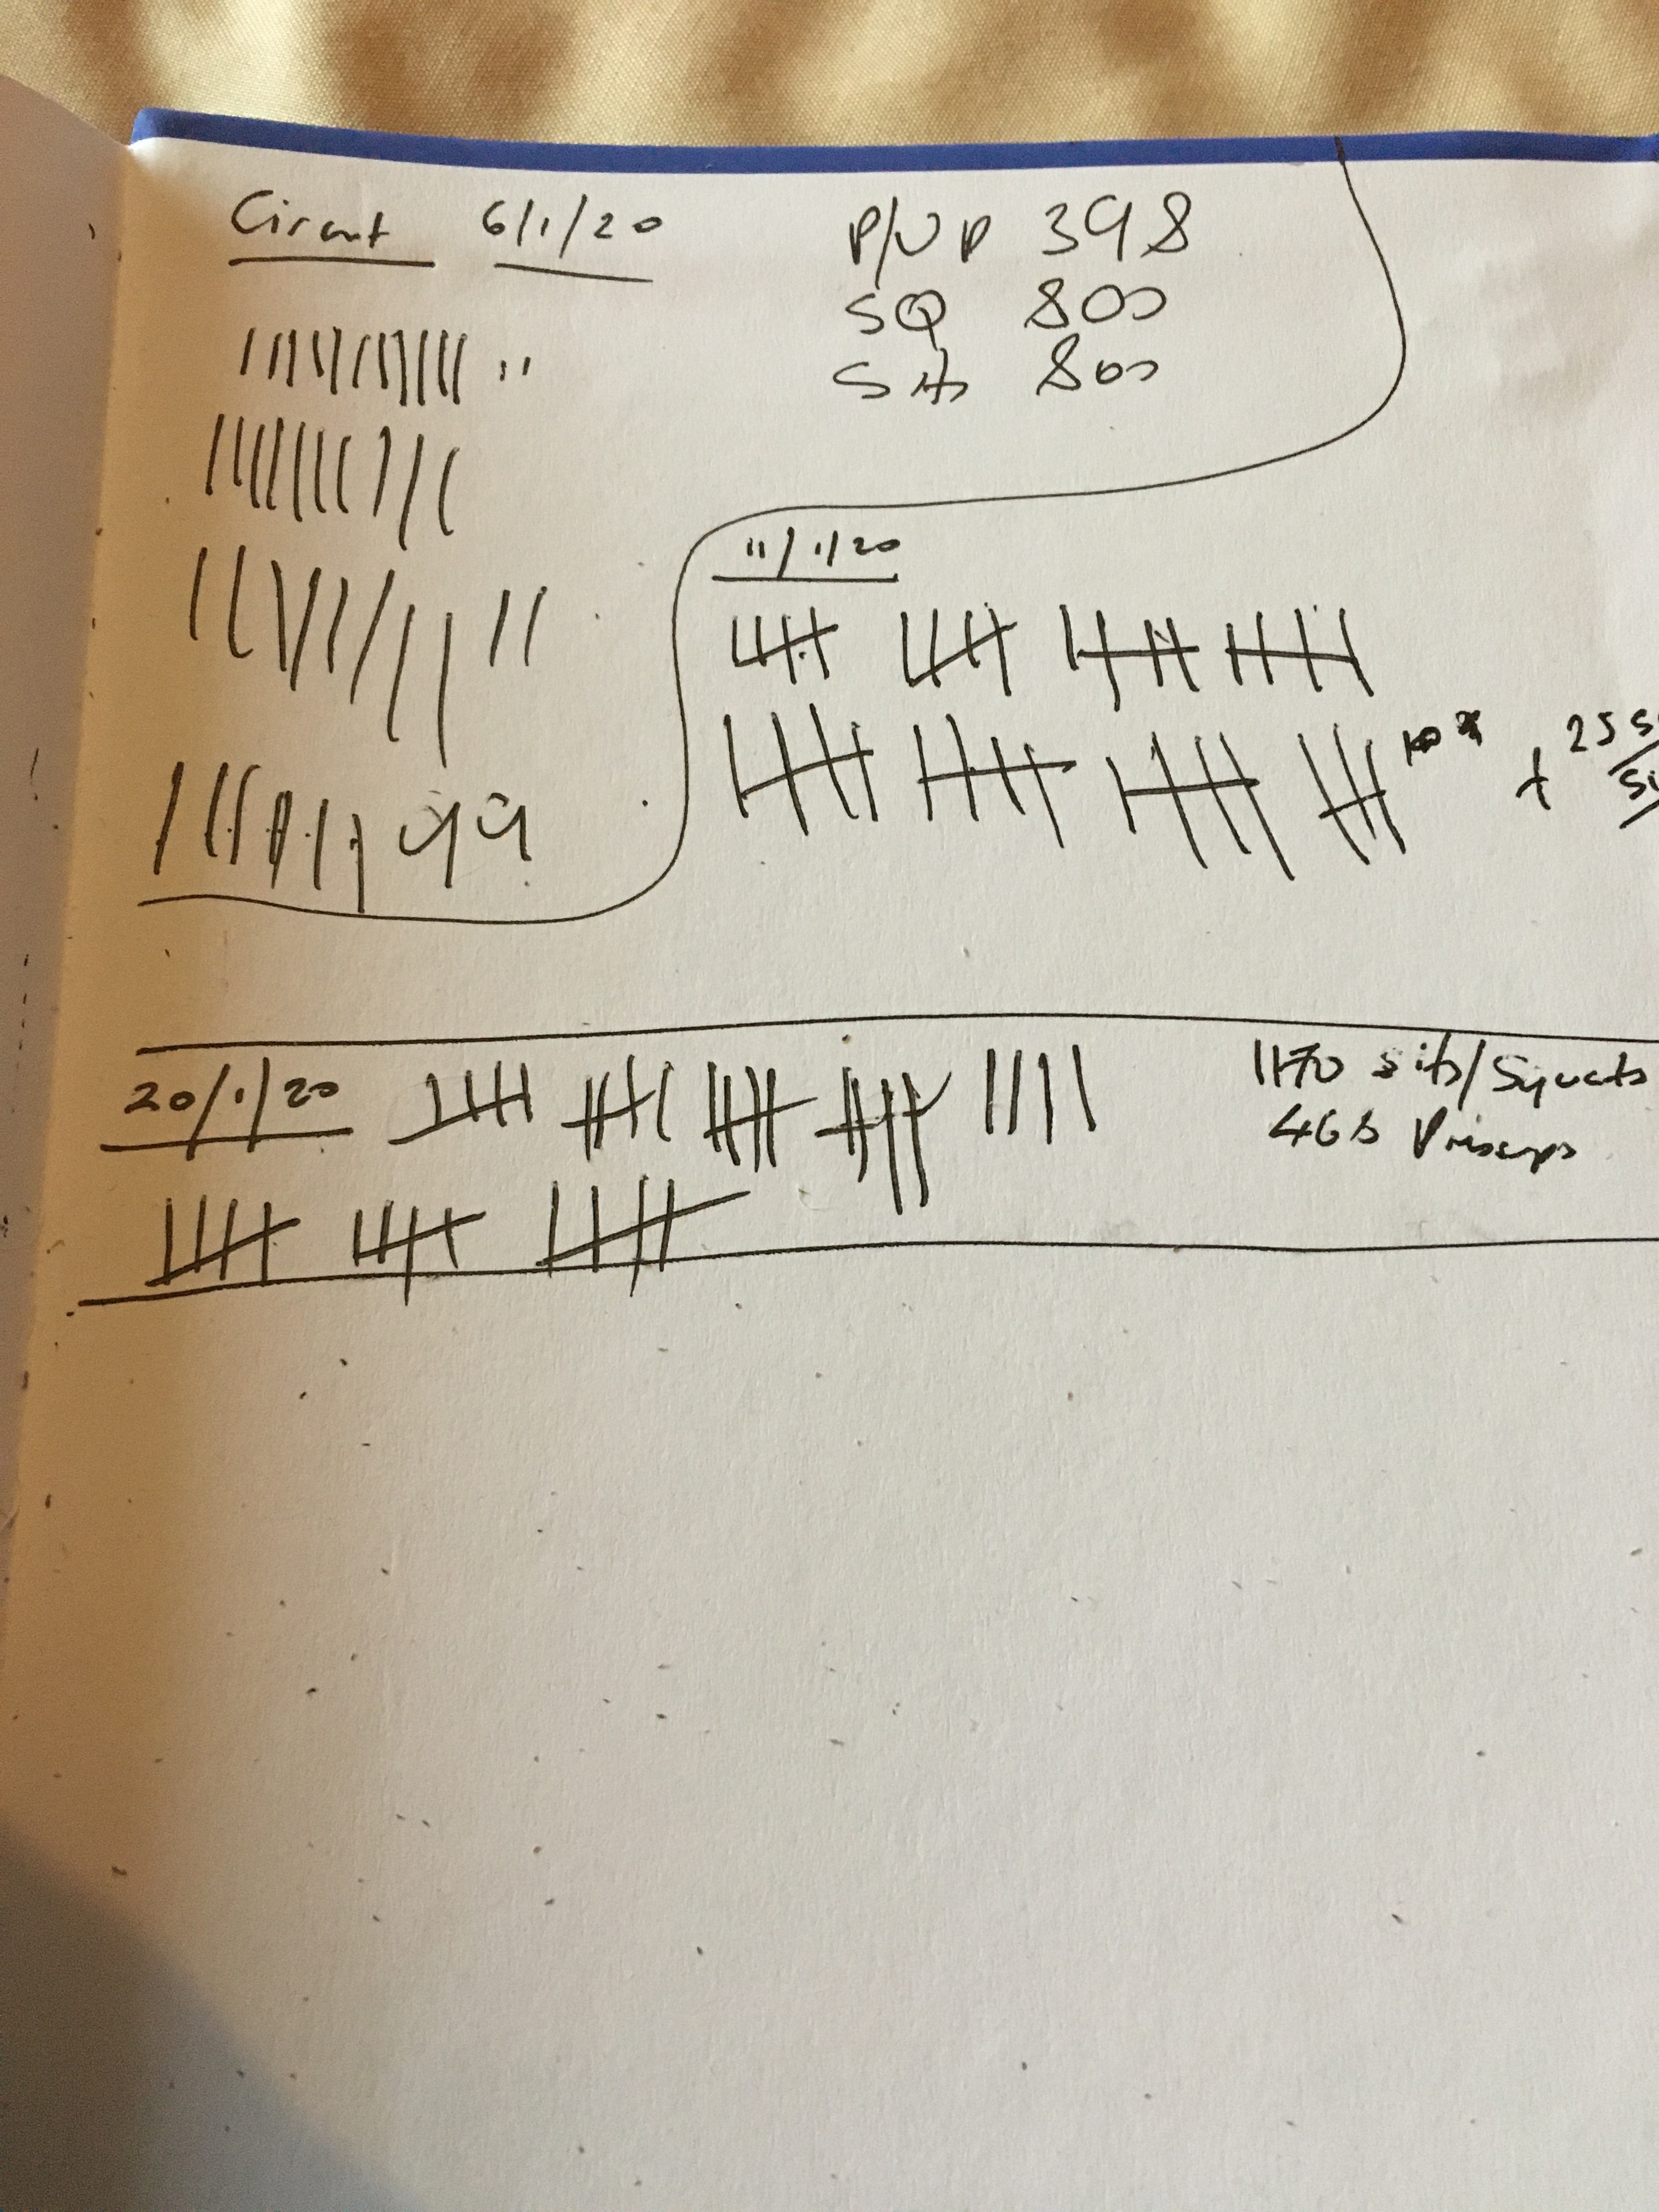 Circuit 6/1/20
P/UP 398
SQ 800
Sits 800
99
11/1/20
+ 25
20/1/20
1170 sits/Squats
468 Presups